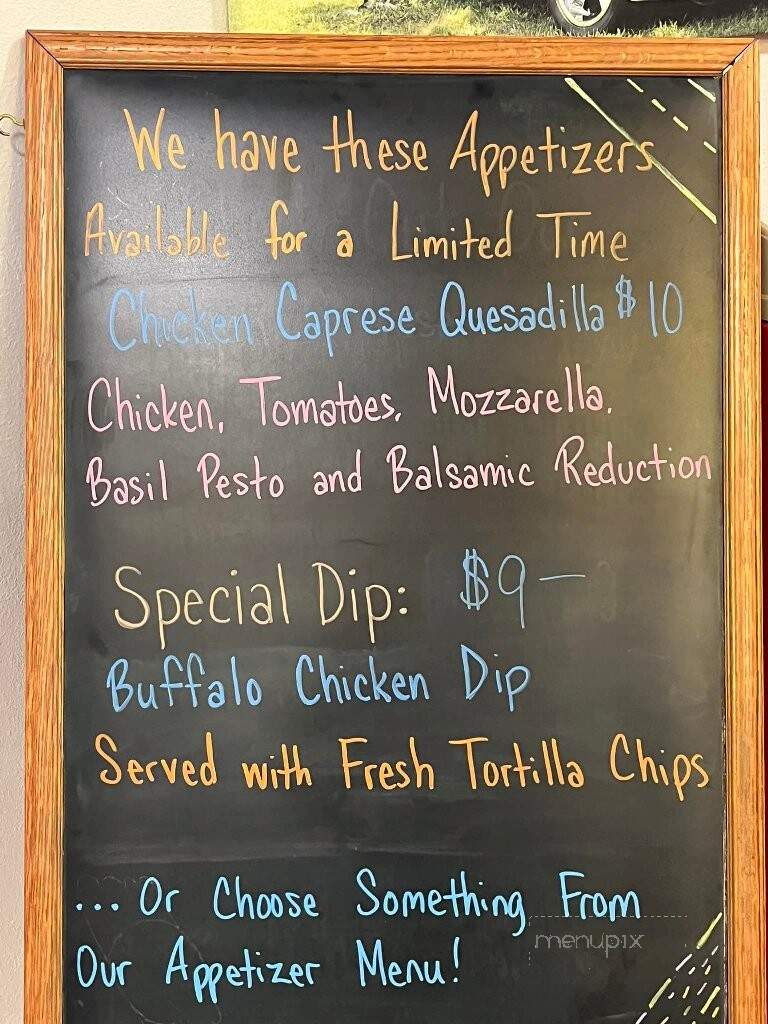 We have these Appetizers
Available for a Limited Time
Chicken Caprese Quesadilla $10
Chicken, Tomatoes, Mozzarella,
Basil Pesto and Balsamic Reduction
Special Dip: $9—
Buffalo Chicken Dip
Served with Fresh Tortilla Chips
... Or Choose Something From
menupix
Our Appetizer Menu!